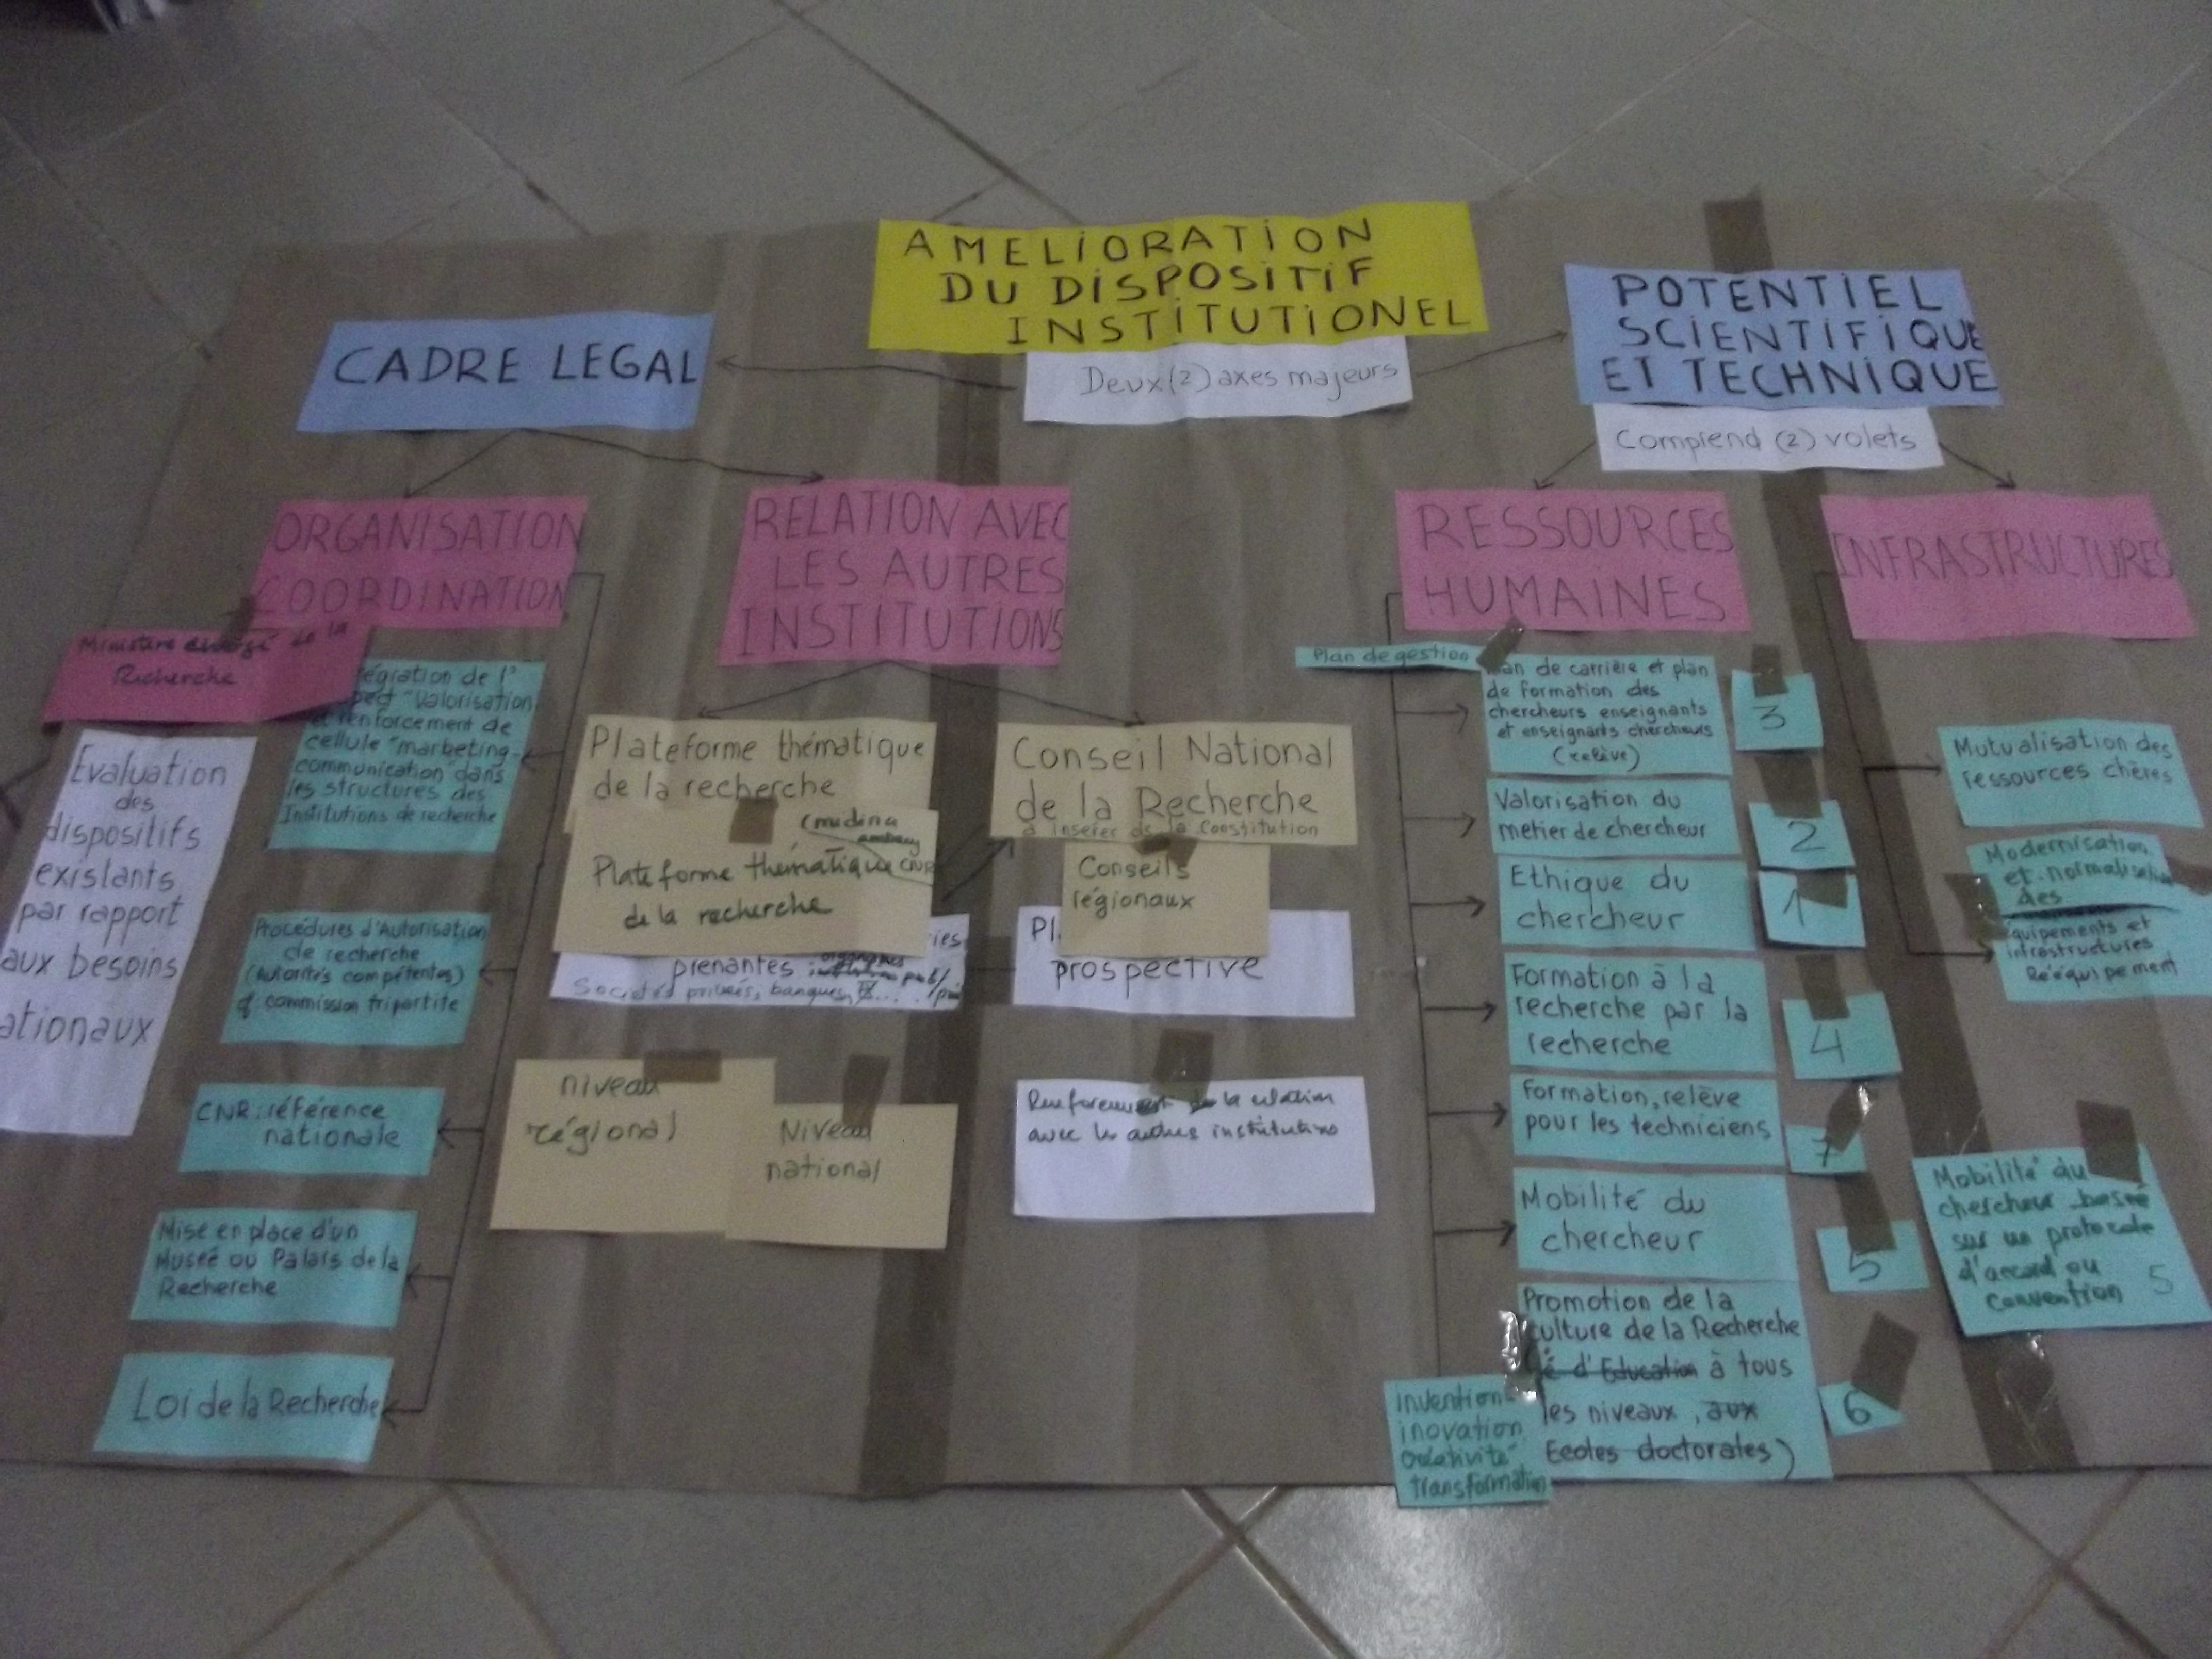 AMELIORATION
DU DISPOSITIF
INSTITUTIONEL
Deux (2) axes majeurs
CADRE LEGAL
POTENTIEL
SCIENTIFIQUE
ET TECHNIQUE
Comprend (2) volets
ORGANISATION
COORDINATION
Ministère de la
Recherche
Evaluation
des
dispositifs
existants
par rapport
aux besoins
ationaux
égration de l'
pect "Valorisation
renforcement de
cellule "marketing-
communication" dans
les structures des
Institutions de recherche
Procédures d'Autorisation
de recherche
(Autorités compétentes)
commission tripartite
CNR: référence
nationale
Mise en place d'un
Museé ou Palais de la
Recherche
Loi de la Recherche
RELATION AVEC
LES AUTRES
INSTITUTIONS
Plateforme thématique
de la recherche
Plateforme thématique
de la recherche
ries
prenantes :
Sociétés privées, banques,
niveau
régional
Niveau
national
Conseil National
de la Recherche
à inserer de la Constitution
Conseils
régionaux
Pl
prospective
Renforcement de la relation
avec les autres institutions
RESSOURCES
HUMAINES
Plan de gestion
lan de carrière et plan
de formation des
chercheurs enseignants
et enseignants chercheurs
(relève)
3
Valorisation du
metier de chercheur
2
Ethique du
chercheur
1
Formation à la
recherche par la
recherche
4
Formation, relève
pour les techniciens
7
Mobilité du
chercheur
5
Promotion de la
culture de la Recherche
é d'Education à tous
les niveaux, aux
Ecoles doctorales)
6
invention
inovation
créativité
transformation
INFRASTRUCTURES
Mutualisation des
ressources chères
Modernisation
et normalisation
des
équipements et
infrastructures
Rééquipement
Mobilité du
chercheur basée
sur un protocole
d'accord ou
convention 5